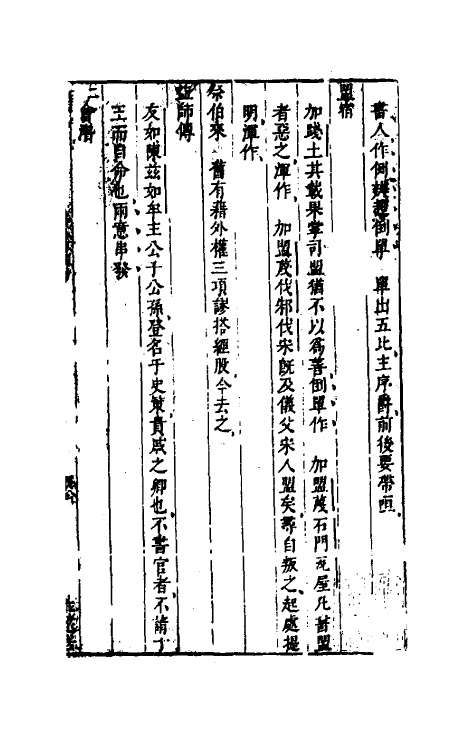 書人作倒纏題倒單　單出五比主序爵前後要帶
盟宿
加踐土其載果掌司盟猶不以為善倒單作　加盟蔑石門瓦屋凡書盟
者惡之渾作　加盟蔑伐邾伐宋既及儀父宋人盟矣尋自叛之起處提
明渾作
祭伯來　舊有藉外權三項謬搭經股今去之
益師傳
友如陳茲如牟主公子公孫登名于史策貴戚之卿也不書官者不請
王而自命也兩意串發
會潛